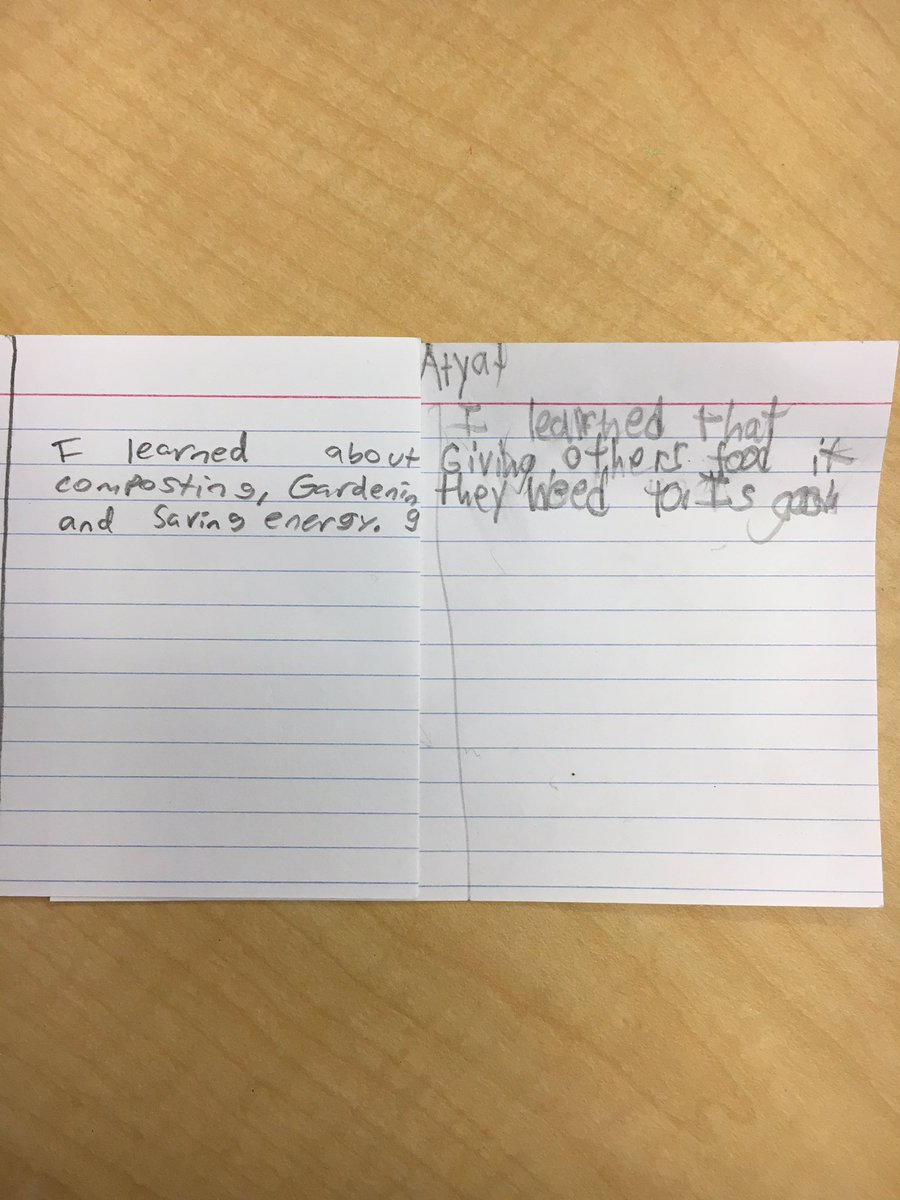 I learned about
composting, Gardenin
and Saving energy. g
Atyaf
I learned that
Giving others food if
they need to. Is good